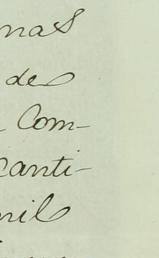 mas
de
Com-
canti-
mil